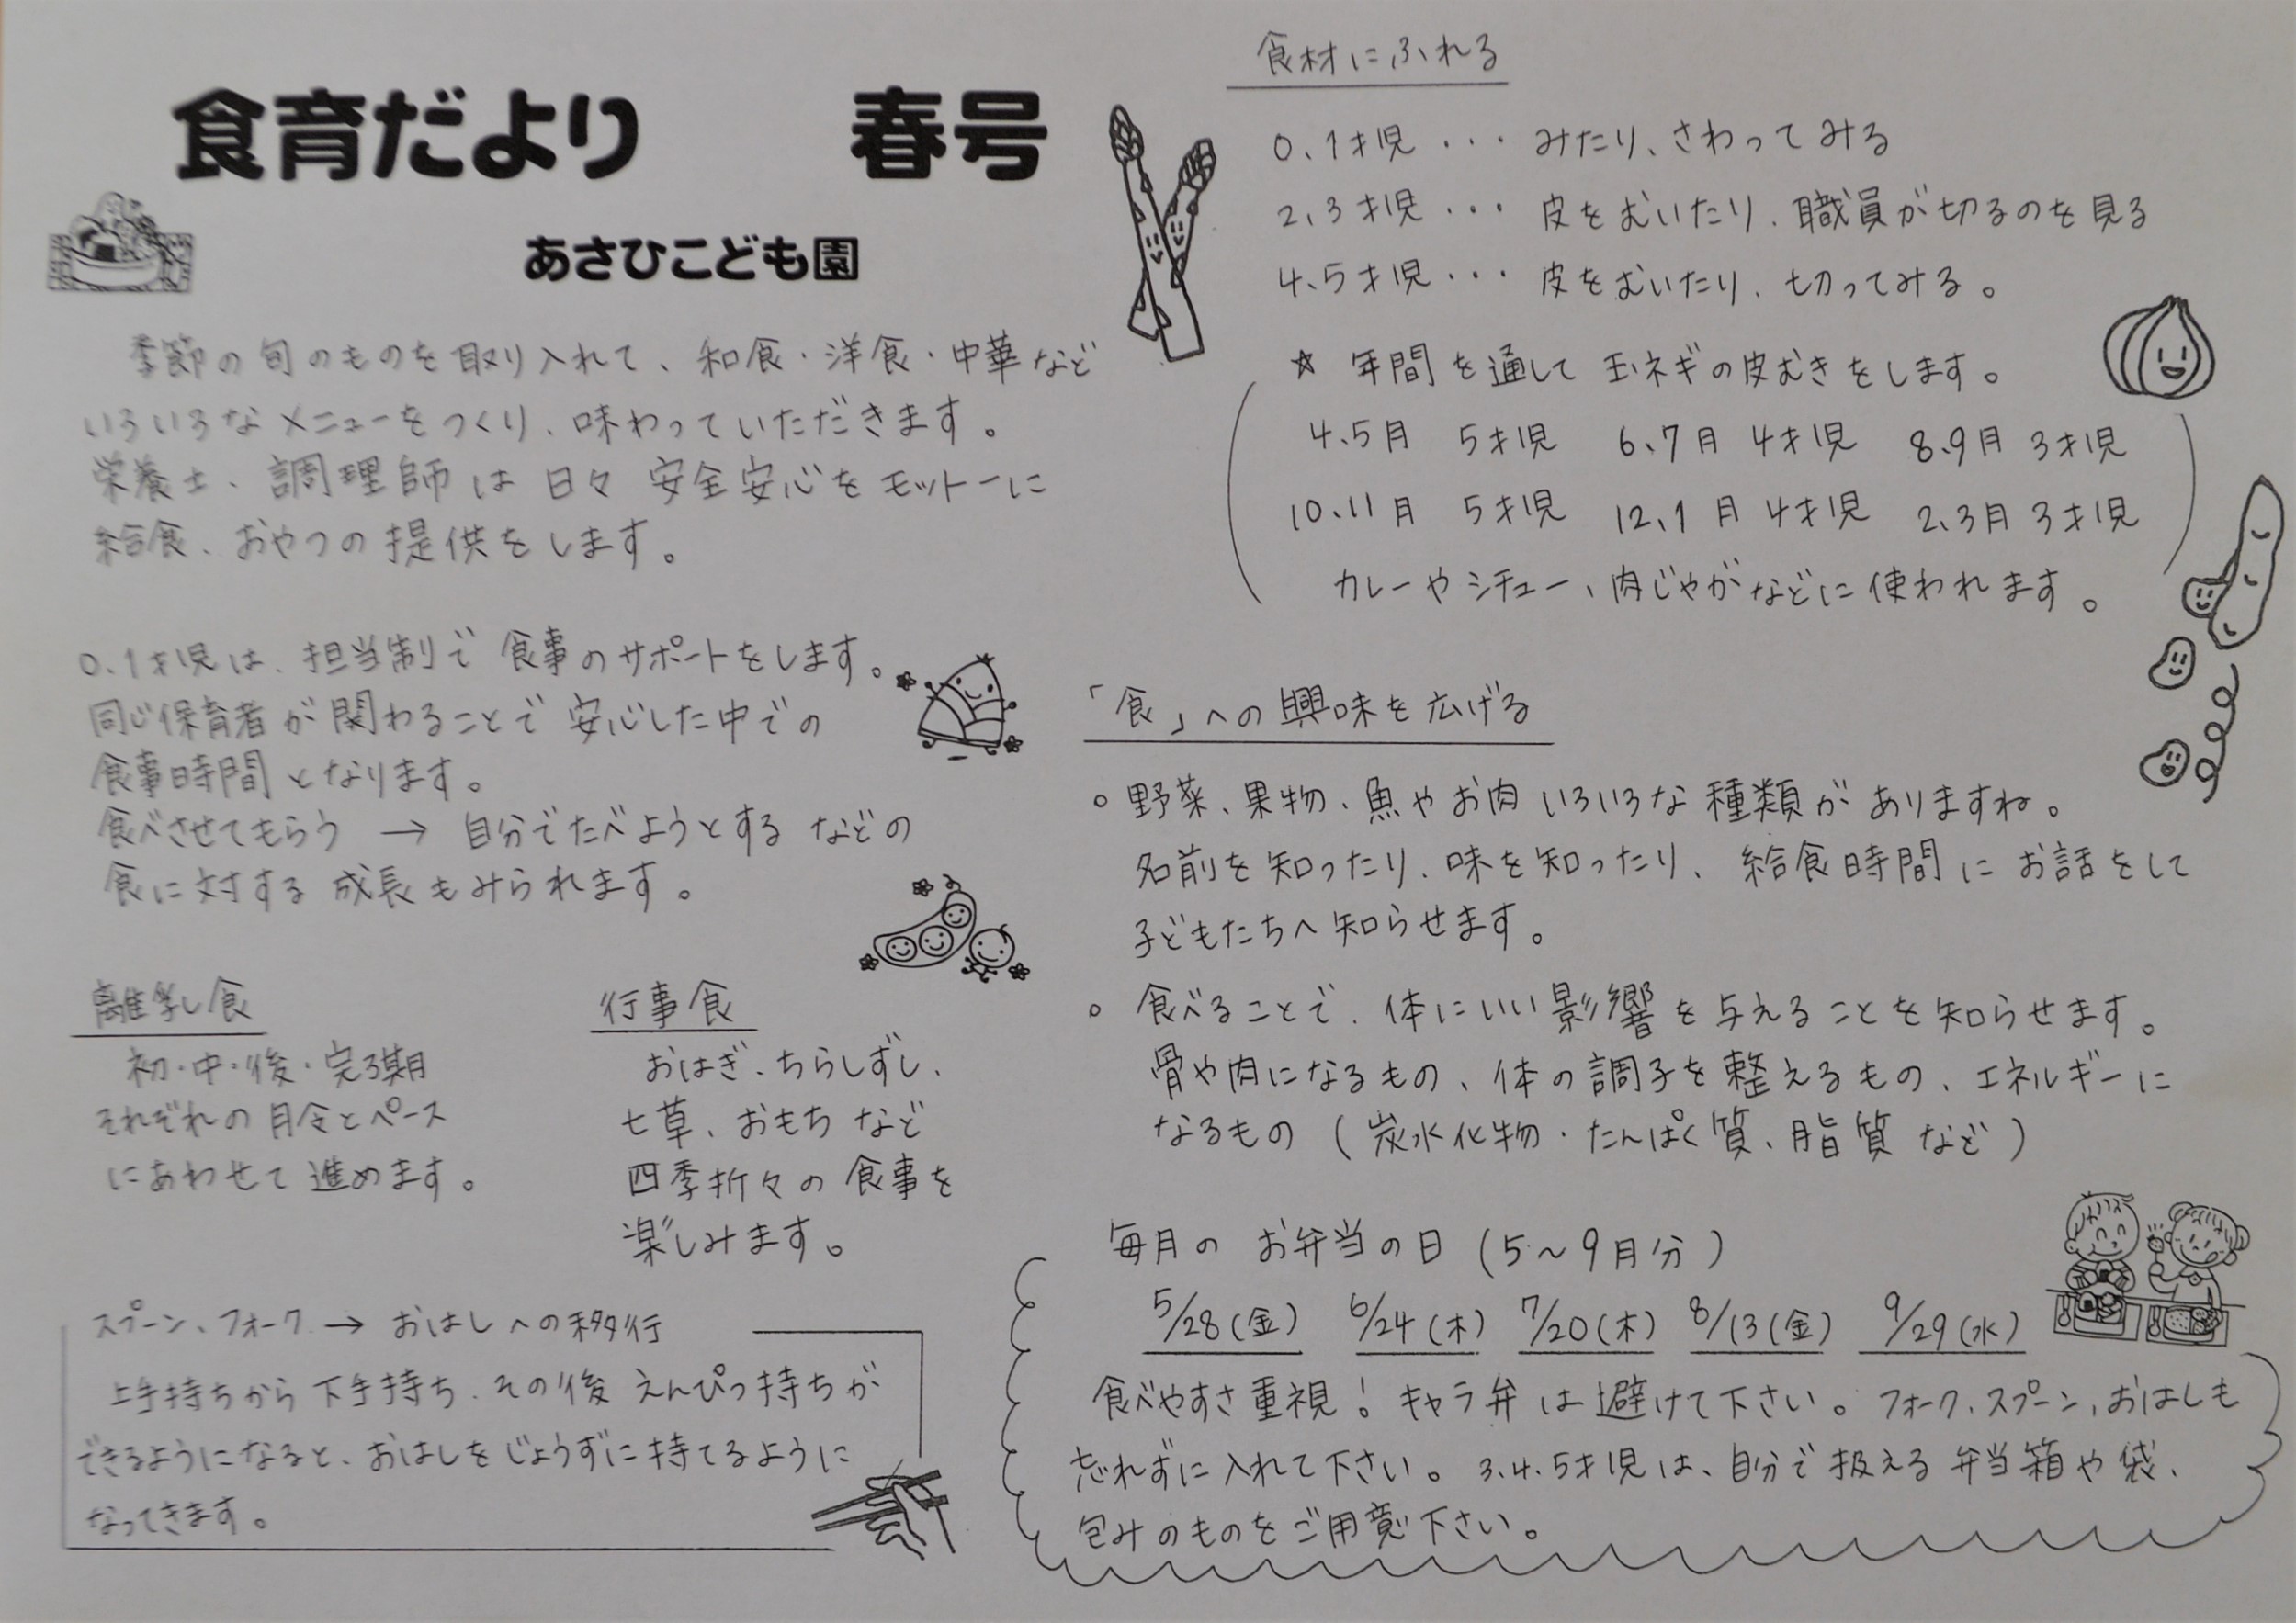 食育だより　春号
あさひこども園
季節の旬のものを取り入れて、和食・洋食・中華など
いろいろなメニューをつくり、味わっていただきます。
栄養士、調理師は日々安全安心をモットーに
給食、おやつの提供をします。
0.1才児は、担当制で食事のサポートをします。
同じ保育者が関わることで安心した中での
食事時間となります。
食べさせてもらう → 自分でたべようとするなどの
食に対する成長もみられます。
離乳食
初・中・後・完了期
それぞれの月令とペース
にあわせて進めます。
行事食
おはぎ、ちらしずし、
七草、おもちなど
四季折々の食事を
楽しみます。
スプーン、フォーク → おはしへの移行
上手持ちから下手持ち、その後えんぴつ持ちが
できるようになると、おはしをじょうずに持てるように
なってきます。
食材にふれる
0、1才児・・・みたり、さわってみる
2、3才児・・・皮をむいたり、職員が切るのを見る
4、5才児・・・皮をむいたり、切ってみる。
☆ 年間を通して玉ネギの皮むきをします。
4、5月　5才児　6、7月　4才児　8、9月　3才児
10、11月　5才児　12、1月　4才児　2、3月　3才児
カレーやシチュー、肉じゃがなどに使われます。
「食」への興味を広げる
○ 野菜、果物、魚やお肉いろいろな種類がありますね。
名前を知ったり、味を知ったり、給食時間にお話をして
子どもたちへ知らせます。
○ 食べることで、体にいい影響を与えることを知らせます。
骨や肉になるもの、体の調子を整えるもの、エネルギーに
なるもの（炭水化物・たんぱく質、脂質など）
毎月のお弁当の日（5～9月分）
5/28（金）　6/24（木）　7/20（木）　8/13（金）　9/29（水）
食べやすさ重視！キャラ弁は避けて下さい。フォーク、スプーン、おはしも
忘れずに入れて下さい。3.4.5才児は、自分で扱える弁当箱や袋、
包みのものをご用意下さい。